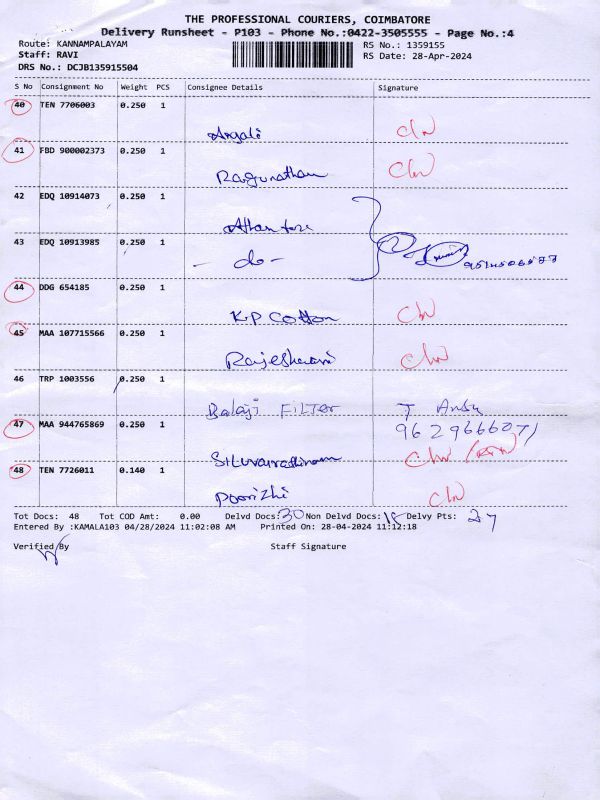 THE PROFESSIONAL COURIERS, COIMBATORE
Delivery Runsheet - P103 - Phone No.:0422-3505555 - Page No.:4
Route: KANNAMPALAYAM RS No.: 1359155
Staff: RAVI RS Date: 28-Apr-2024
DRS No.: DCJB135915504
S No Consignment No Weight PCS Consignee Details Signature
40 TEN 7706003 0.250 1
Angali
41 FBD 900002373 0.250 1
Ragunathan
42 EDQ 10914073 0.250 1
43 EDQ 10913985 0.250 1
- do -
44 DDG 654185 0.250 1
K.P Cotton
45 MAA 107715566 0.250 1
46 TRP 1003556 0.250 1
Balaji FILTER T
47 MAA 944765869 0.250 1 9629666071
48 TEN 7726011 0.140 1
Tot Docs: 48 Tot COD Amt: 0.00 Delvd Docs: 30 Non Delvd Docs: 18 Delvy Pts: 27
Entered By :KAMALA103 04/28/2024 11:02:08 AM Printed On: 28-04-2024 11:12:18
Verified By Staff Signature